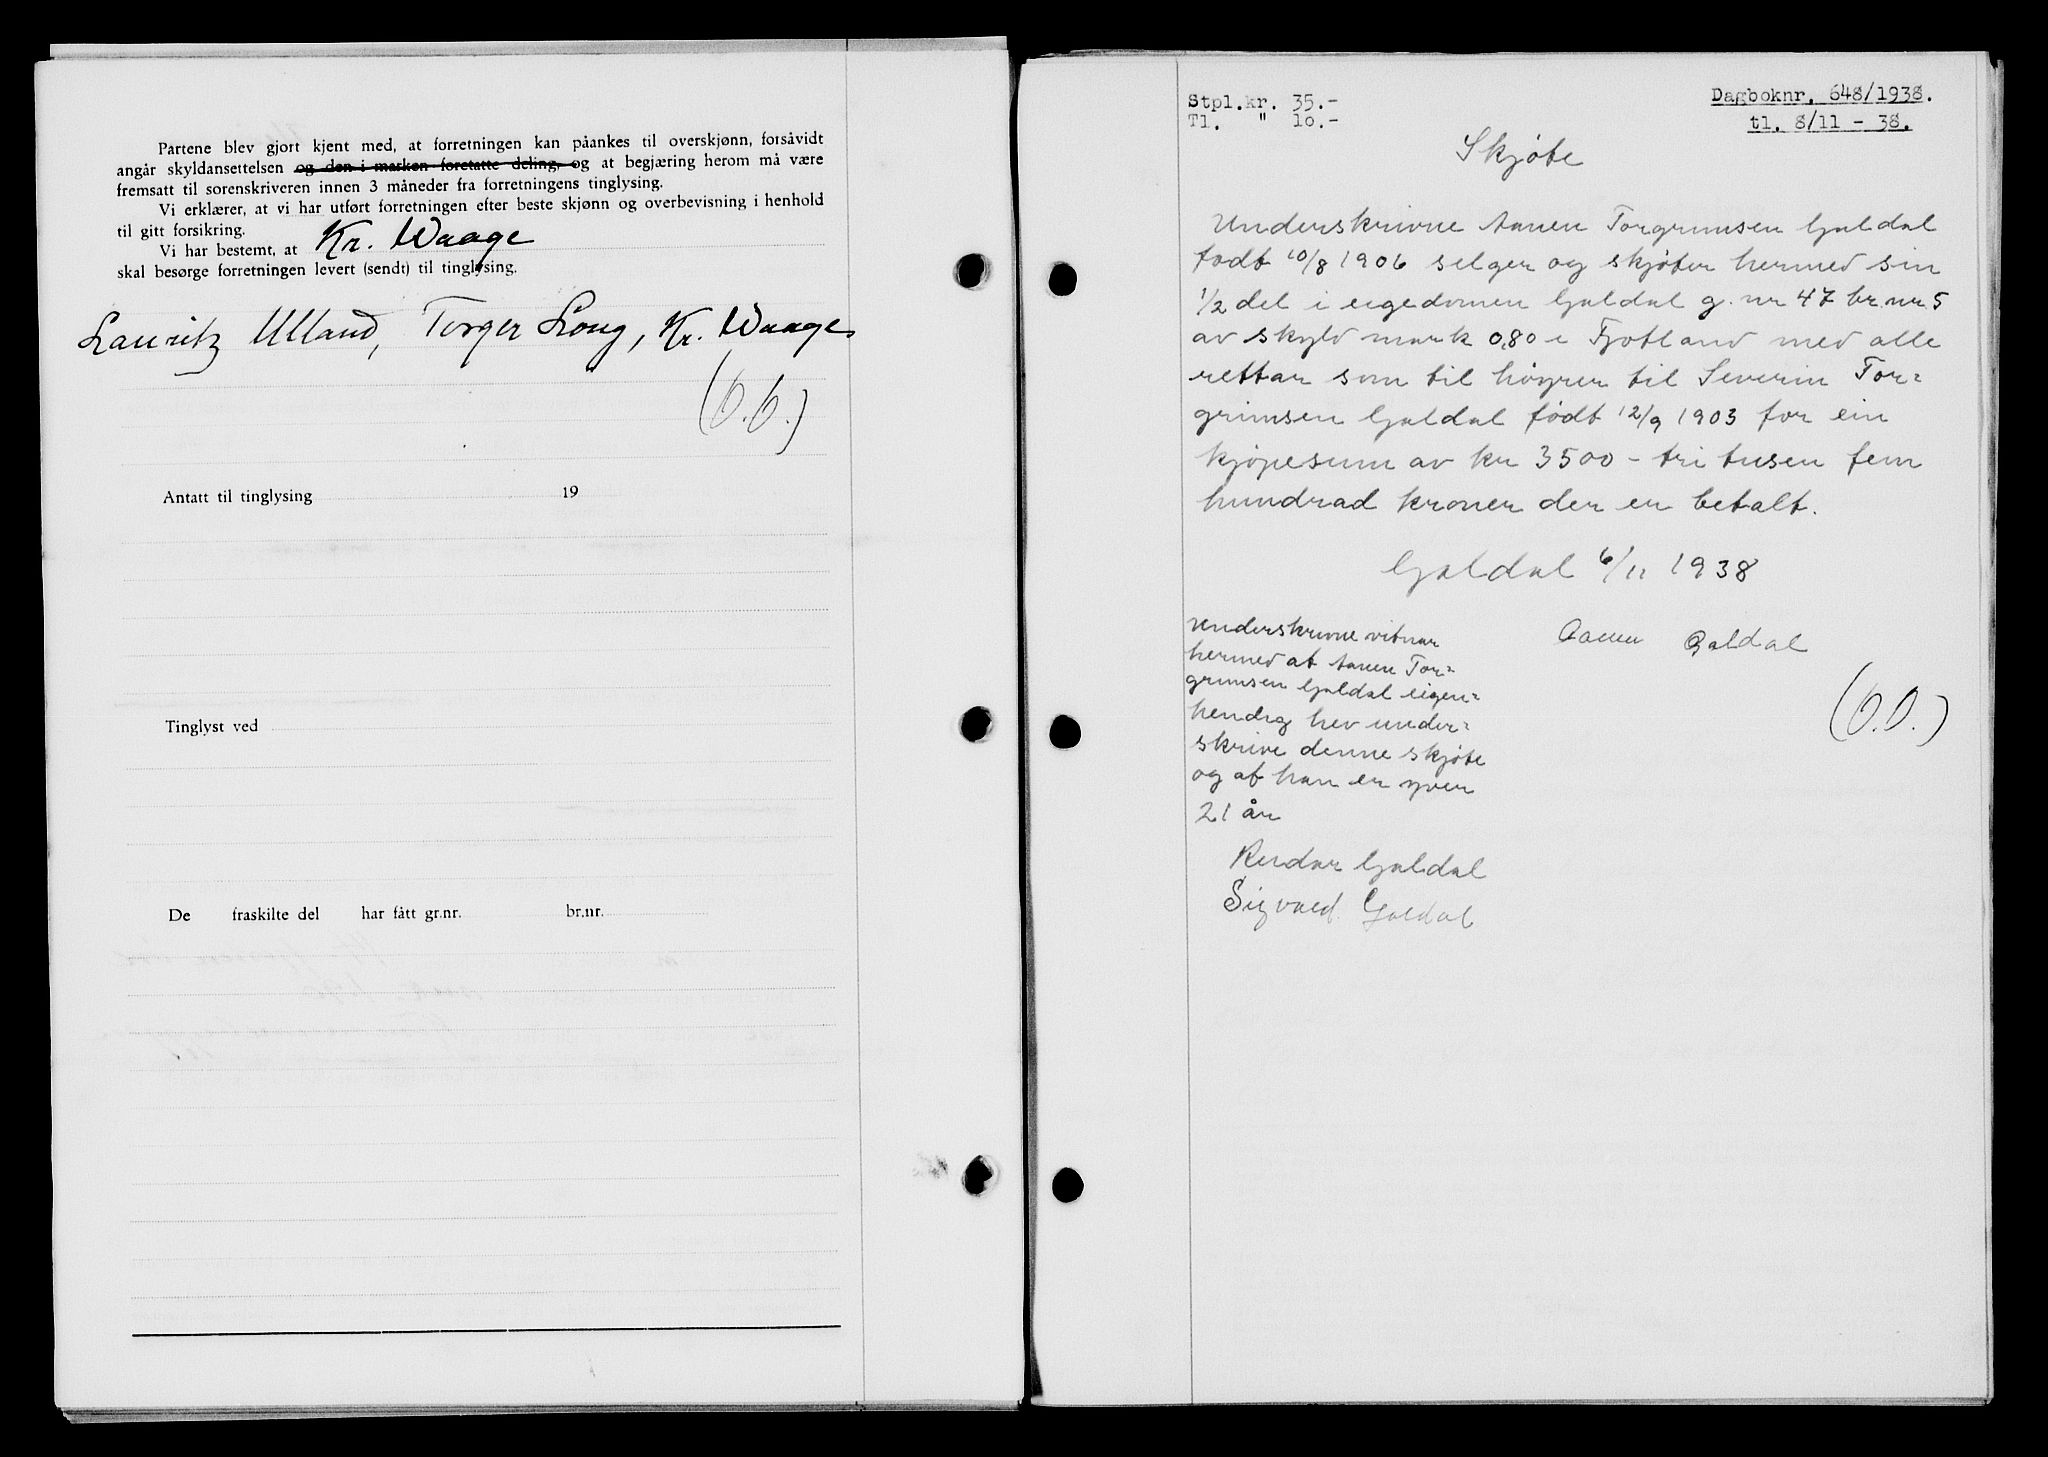 Partene blev gjort kjent med, at forretningen kan påankes til overskjønn, forsåvidt
angår skyldansettelsen og den i marken foretatte deling, og at begjæring herom må være
fremsatt til sorenskriveren innen 3 måneder fra forretningens tinglysing.
Vi erklærer, at vi har utført forretningen efter beste skjønn og overbevisning i henhold
til gitt forsikring.
Vi har bestemt, at Kr. Waage
skal besørge forretningen levert (sendt) til tinglysing.
Lauritz Ulland, Torger Loug, Kr. Waage
Antatt til tinglysing 19
Tinglyst ved
De fraskilte del har fått gr.nr. br.nr.
Stpl.kr. 35.-
Tl. " 10.-
Dagboknr. 648/1938.
tl. 8/11 - 38.
Skjøte
Underskrivne Aanen Torgrimsen Galdal
født 10/8 1906 selger og skjøter hermed sin
1/2 del i eigedomen Galdal g. nr 47 br. nr. 5
av skyld mark 0,80 i Fjotland med alle
rettar som til høyrer til Severin Tor=
grimsen Galdal født 12/9 1903 for ein
kjøpesum av kr 3500 - tri tusen fem
hundrad kroner der er betalt.
Galdal 6/11 1938
Aanen Galdal
(O.O.)
Underskrivne vitnar
hermed at Aanen Tor=
grimsen Galdal eigen=
hendig hev under=
skrive denne skjøte
og at han er yver
21 år
Reidar Galdal
Sigvald Galdal